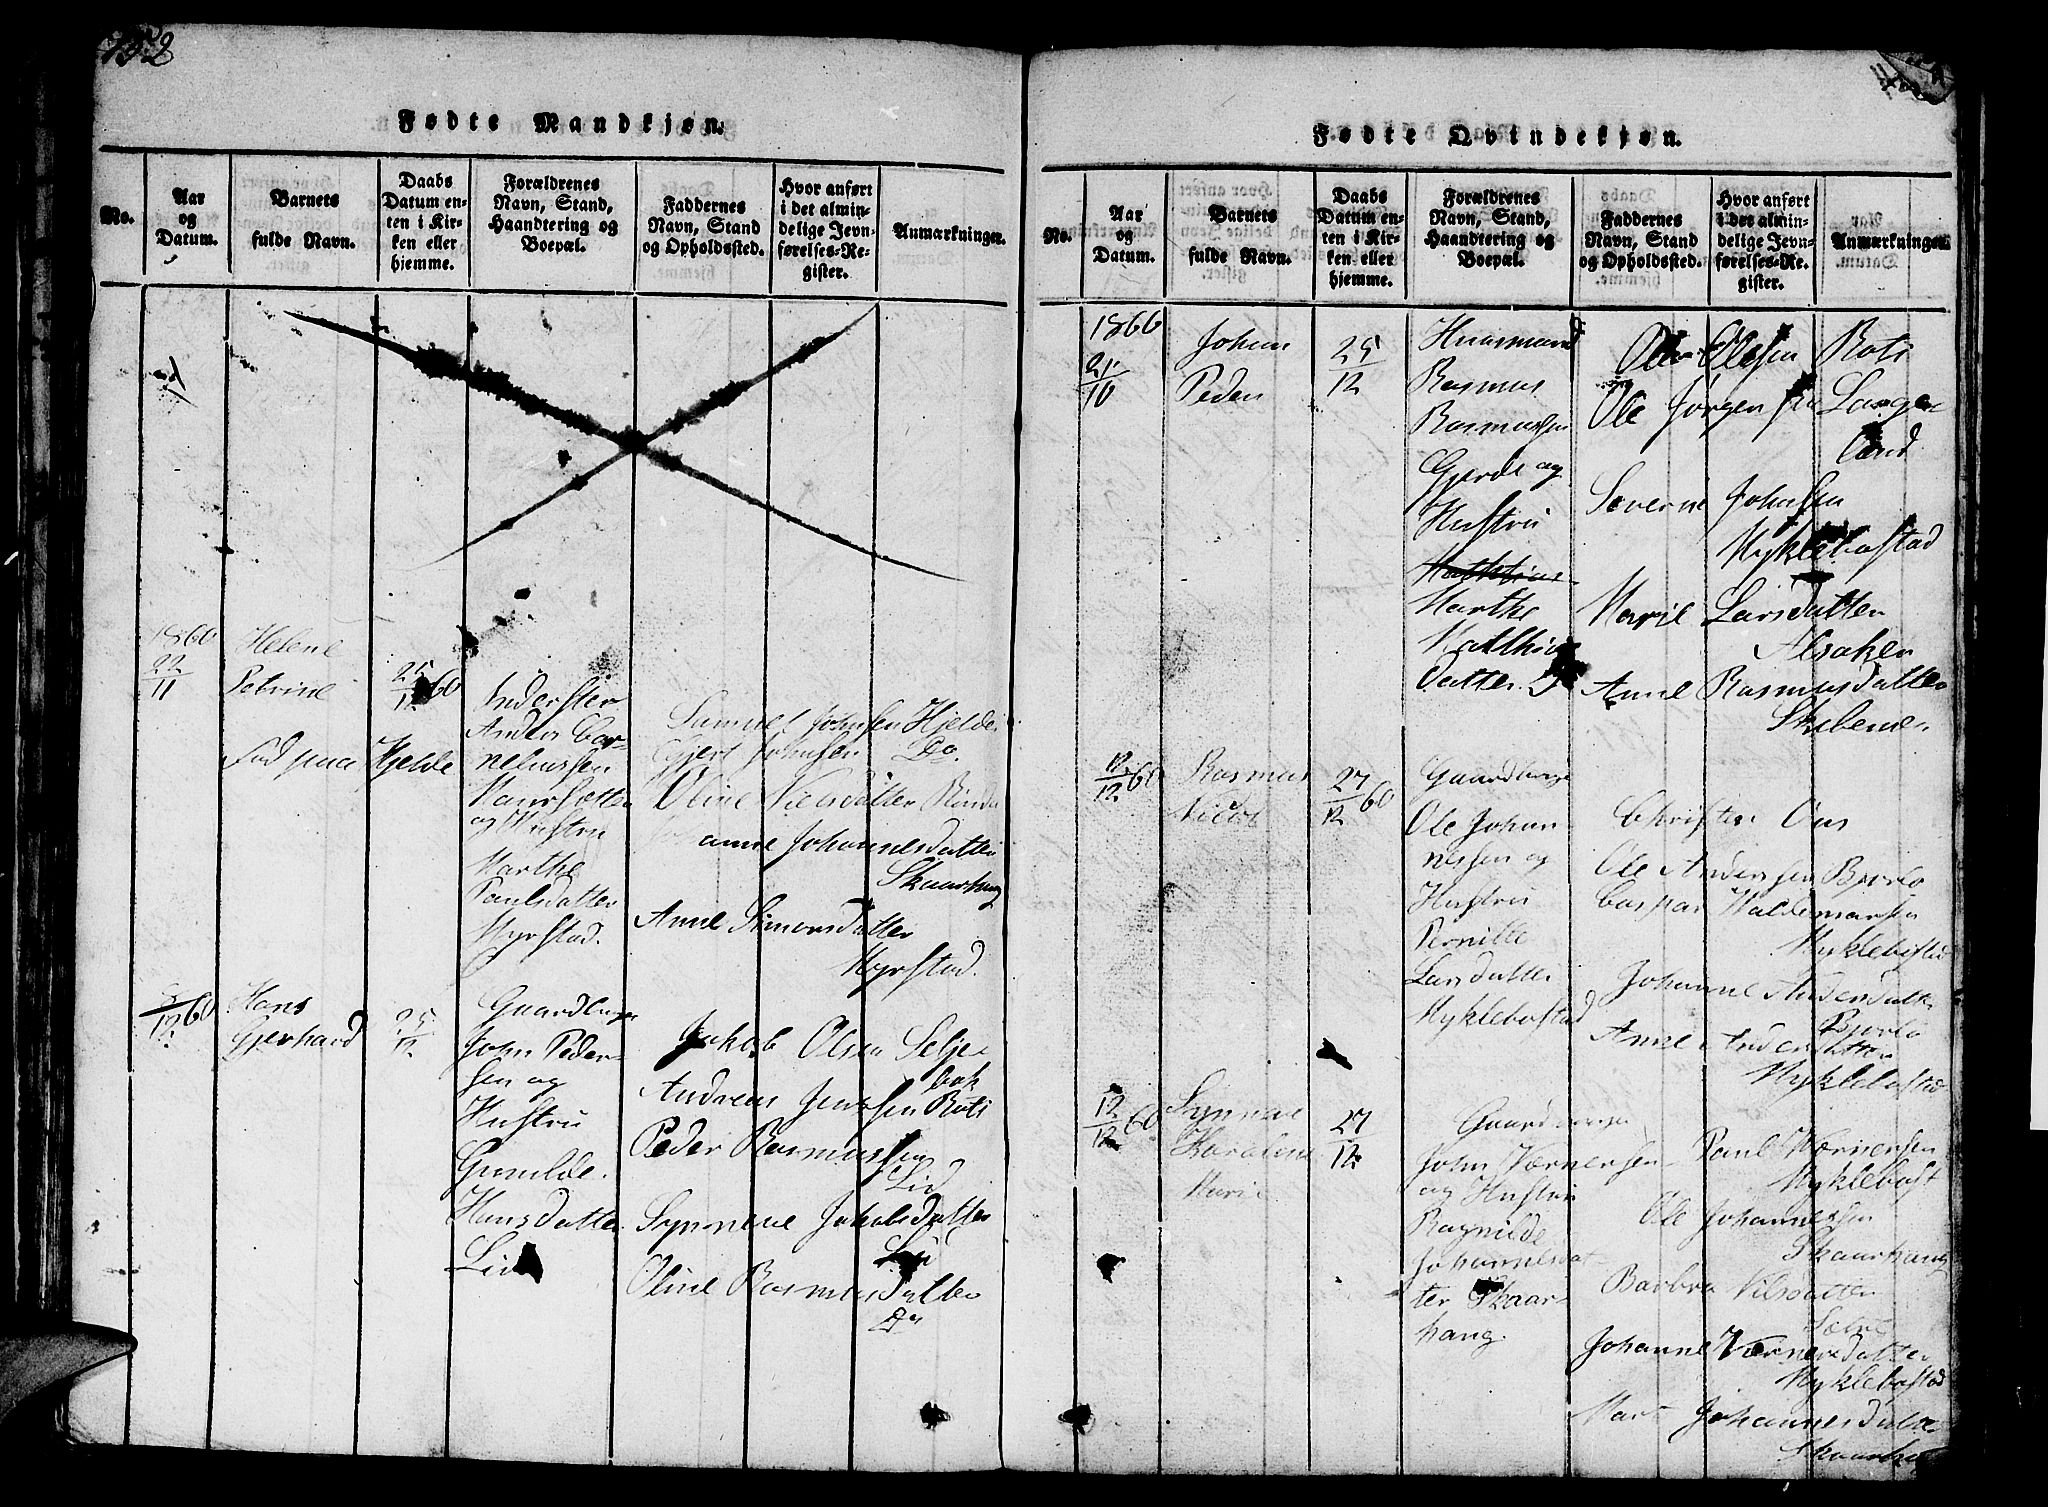 152
Fødte Mandkjøn.
No.
Aar
og
Datum.
Barnets
fulde Navn.
Daabs
Datum en-
ten i Kir-
ken eller
hjemme.
Forældrenes
Navn, Stand,
Haandtering og
Boepæl.
Faddernes
Navn, Stand
og Opholdssted.
Hvor anført
i det almin-
delige Jevn-
førelses-Re-
gister.
Anmærkninger.
1860
22
11
Helene
Petrine
Fød paa Hjelde
25
12 60
Inderster
Anders Cor-
neliussen
og Hustru
Marthe
Paulsdatter
Myrstad.
Samuel Johnsen Hjelde
Gjert Johnsen Do.
Oline Nielsdatter
Johannesdatter
Skaarhang
Anne Simonsdatter
Myrstad.
12 60
Hans
Gjerhard
25
12
Gaardbruger
John Peder-
sen og
Hustru
Gunilde
Hansdatter
Lid
Jakob Olsen Selje-
bak
Andreas Jenssen Roti
Peder Rasmussen
Lid
Synneve Jakobsdatter
Lid
Oline Rasmusdatter
Do
Fødte Qvindekjøn.
No.
Aar
og
Datum.
Barnets
fulde Navn.
Daabs
Datum en-
ten i Kir-
ken eller
hjemme.
Forældrenes
Navn, Stand,
Haandtering og
Boepæl.
Faddernes
Navn, Stand
og Opholdssted.
Hvor anført
i det almin-
delige Jevn-
førelses-Re-
gister.
Anmærkninger.
1860
21
10
Johan
Peder
25
12
Huusmand
Rasmus
Rasmussen
Gjerde og
Hustru
Marthe
Datter
Ole Olsen Roti
Ole Jørgensen Lange-
land
Severine Johnsen
Myklebostad
Marie Larsdatter
Alsaker
Anne Rasmusdatter
12 60
Rasmus
Nicolai
27
12 60
Gaardbruger
Ole Johan-
nessen og
Hustru
Pernille
Larsdatter
Myklebostad
Christen Aus
Ole Andersen Bjørlo
Caspar Waldemarsen
Myklebostad
Johanne Andersdatter
Bjørlo
Anne Andersdatter
Myklebostad
12
12 60
Synneve
Karoline
Marie
27
12
Gaardbruger
John Wernersen
og Hustru
Ragnilde
Johannesdat
ter Skaar-
hang.
Paul Wernersen
Myklebost
Ole Johannessen
Skaarhang
Barbra Nilsdatter
Sætre
Johanne Wernersdatter
Myklebostad
Johannesdatter
Skaarhang